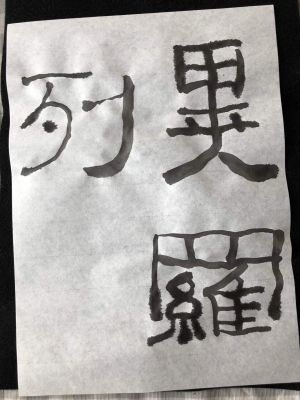 異羅
列